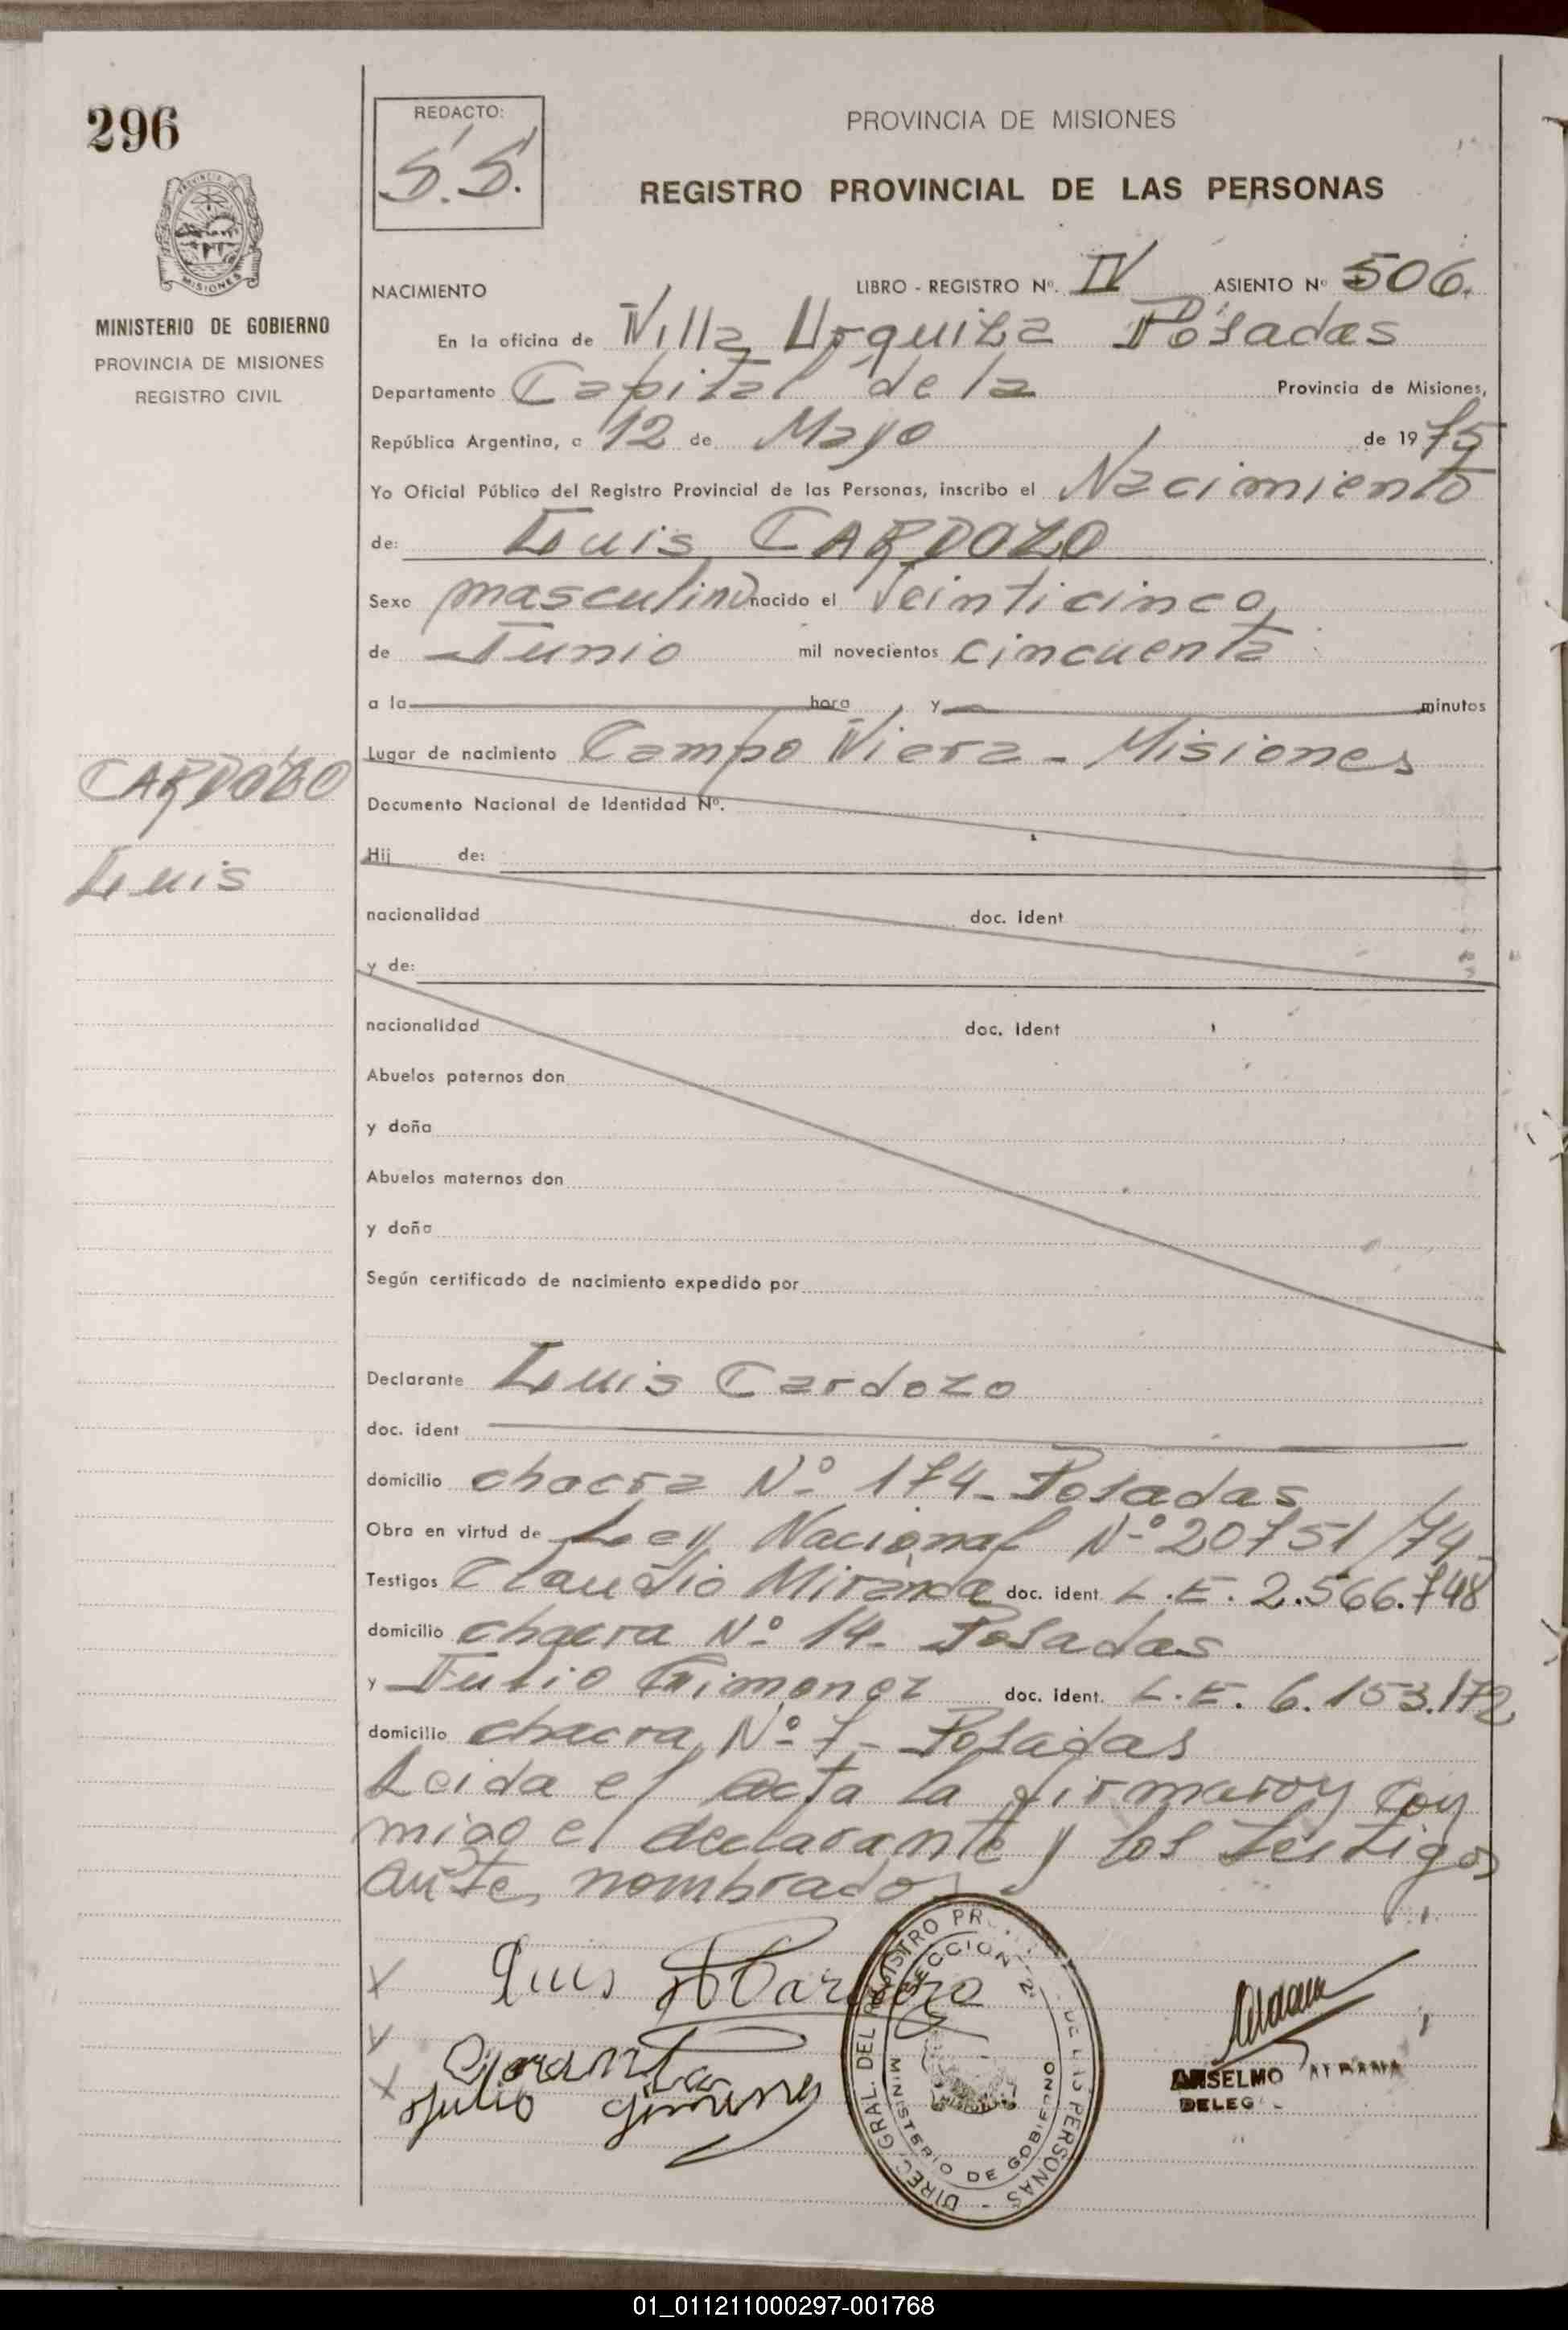 296
REDACTO:
S.S.
PROVINCIA DE MISIONES
REGISTRO PROVINCIAL DE LAS PERSONAS
PROVINCIA DE
MISIONES
MINISTERIO DE GOBIERNO
PROVINCIA DE MISIONES
REGISTRO CIVIL
NACIMIENTO LIBRO - REGISTRO Nº. IV ASIENTO Nº 506.
En la oficina de Villa Urquiza Posadas
Departamento Capital de la Provincia de Misiones,
República Argentina, a 12 de Mayo de 1975
Yo Oficial Público del Registro Provincial de las Personas, inscribo el Nacimiento
de: Luis CARDOZO
Sexo masculino nacido el Veinticinco
de Junio mil novecientos cincuenta
a la hora y minutos
Lugar de nacimiento Campo Viera - Misiones
CARDOZO
Luis
Documento Nacional de Identidad Nº.
Hij de:
nacionalidad doc. ident
y de:
nacionalidad doc. ident
Abuelos paternos don
y doña
Abuelos maternos don
y doña
Según certificado de nacimiento expedido por
Declarante Luis Cardozo
doc. ident
domicilio chacra Nº 174 - Posadas
Obra en virtud de Ley Nacional Nº 20751/74
Testigos Claudio Miranda doc. ident L.E. 2.566.748
domicilio chacra Nº 14 - Posadas
y Julio Gimenez doc. ident. L.E. 6.153.172
domicilio chacra Nº 7 - Posadas
Leida el acta la firmaron con
migo el declarante y los testigos
ante nombrados
X Luis Cardozo
X
X Julio Gimenez
DIREC. GRAL. DEL REGISTRO PR DE LAS PERSONAS
SECCION 2ª
MINISTERIO DE GOBIERNO
ANSELMO
DELEG
01_011211000297-001768